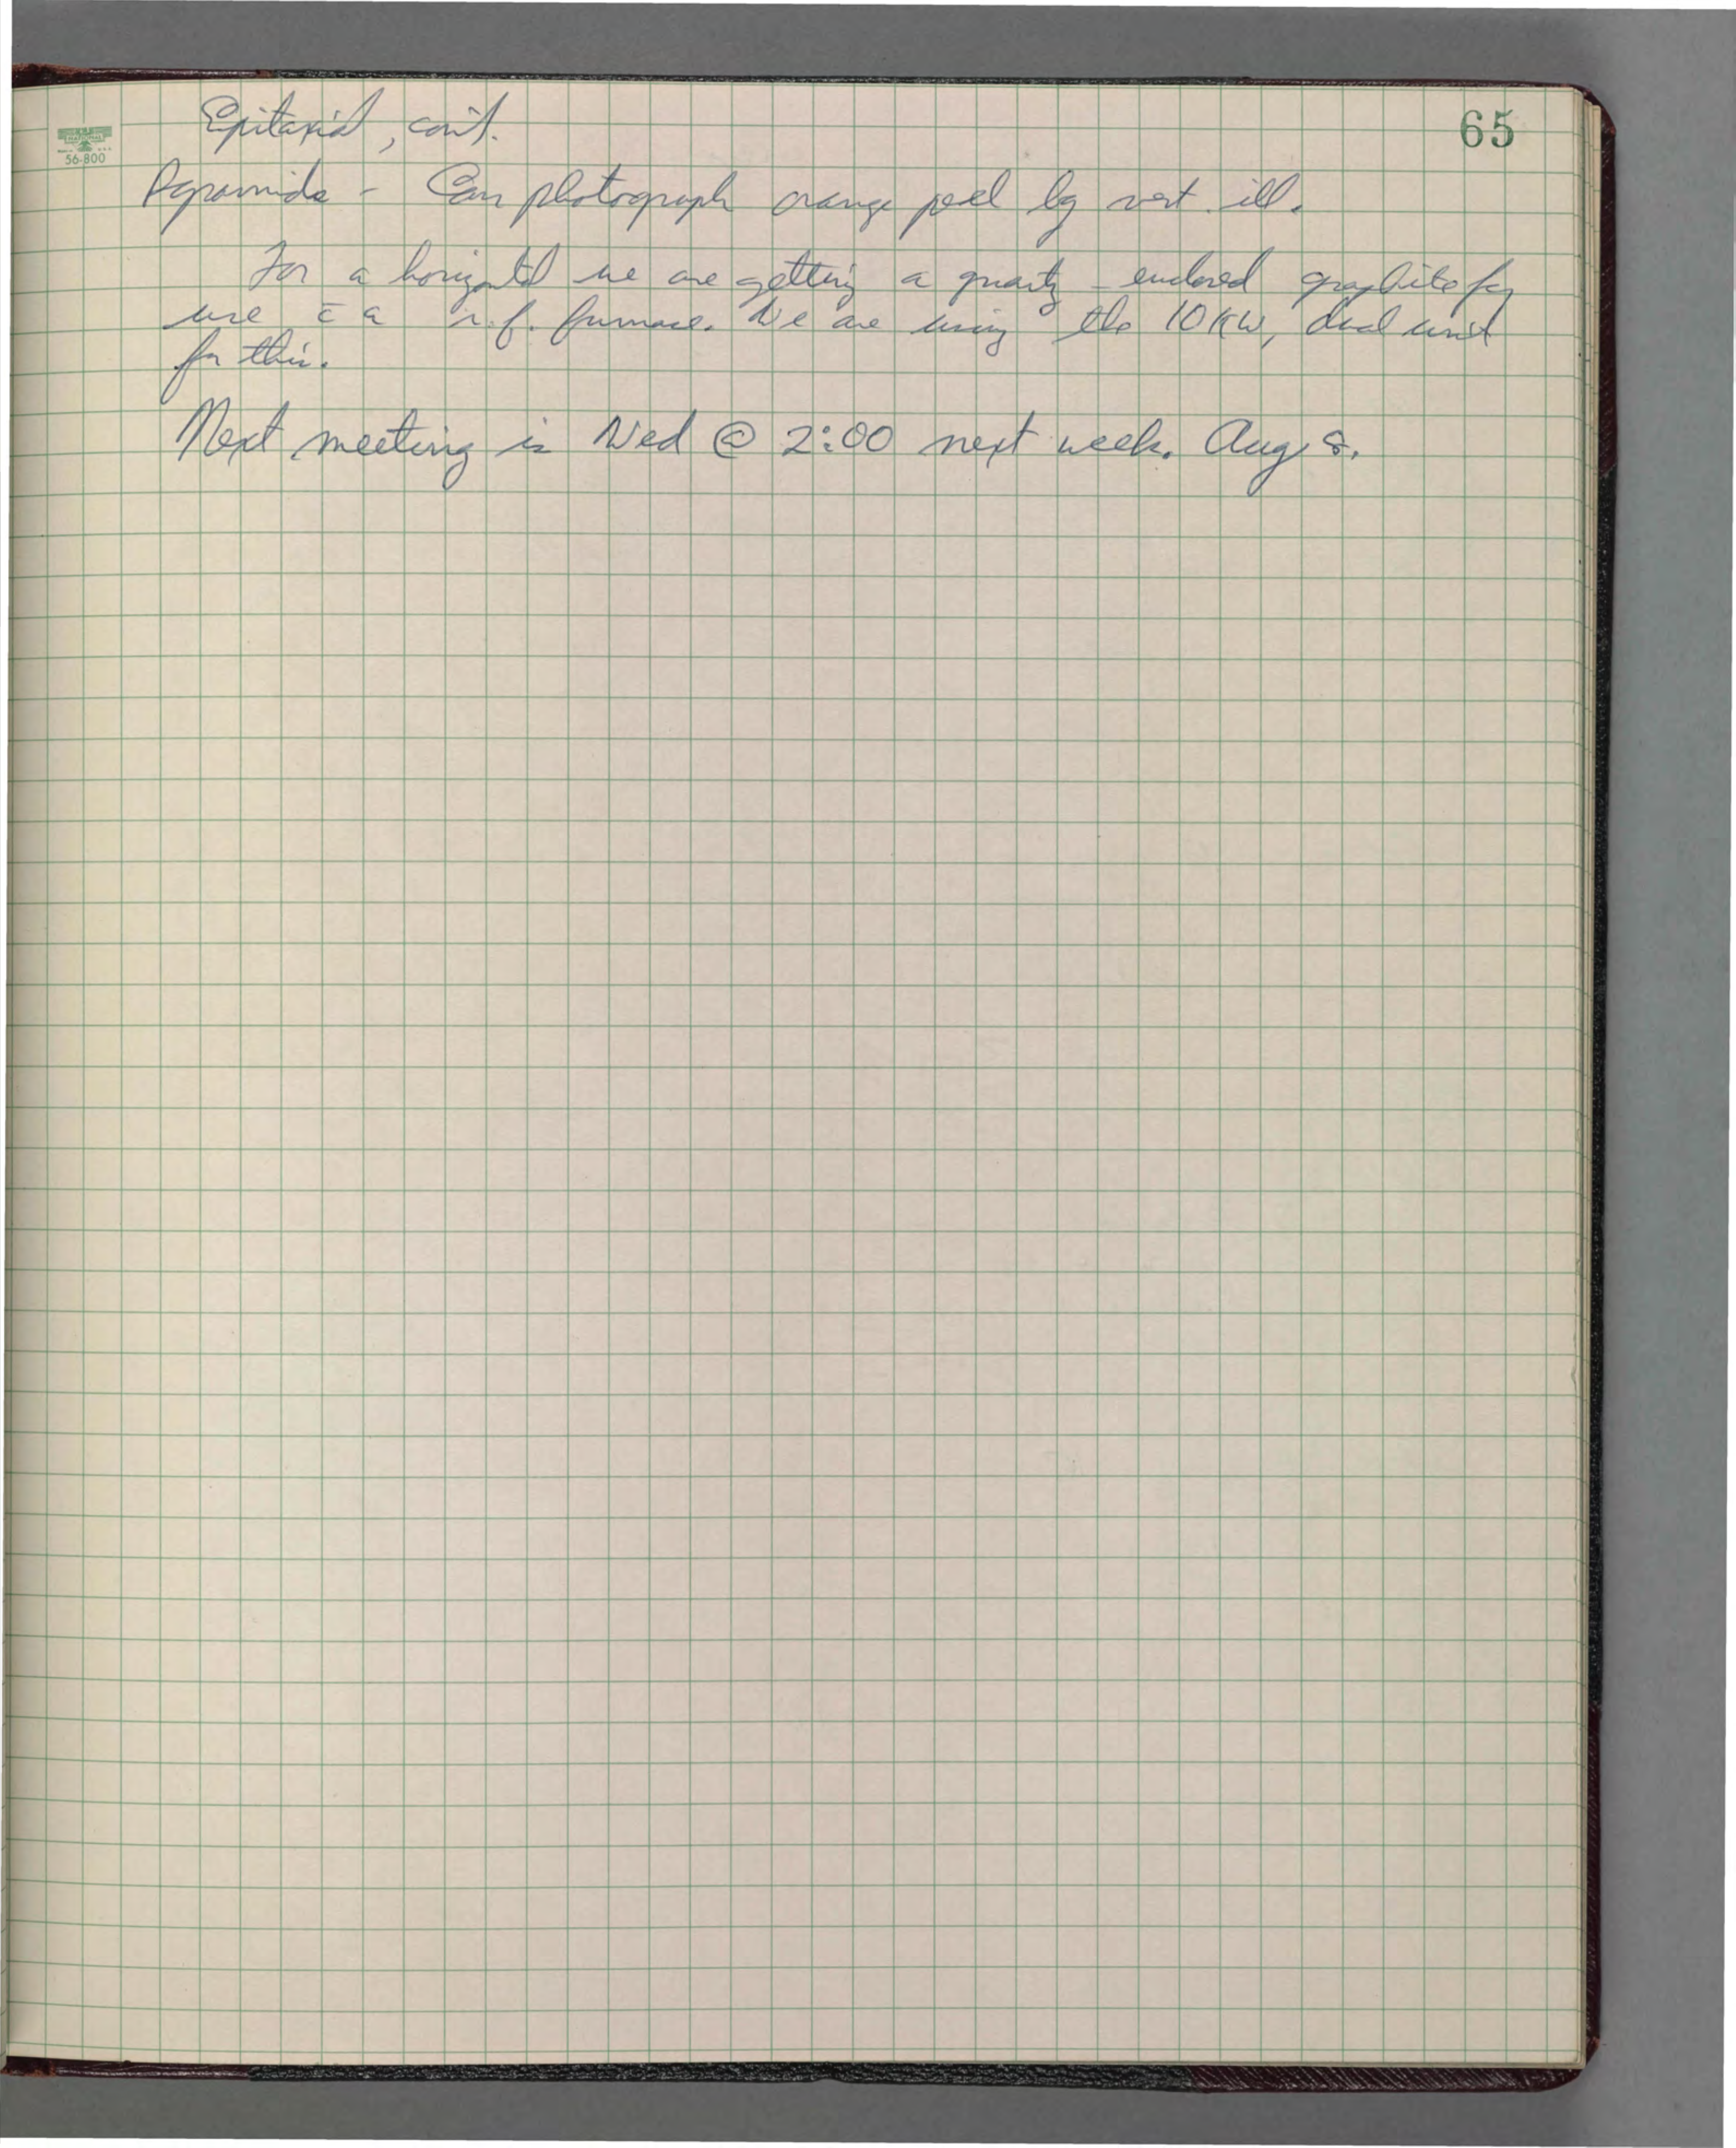 65
56-800
Epitaxial, con't.
Pyramids - Can photograph orange peel by vert. ill.
For a horizontal we are getting a quartz - enclosed graphite for
use c̄ a r.f. furnace. We are using the 10 KW, dual unit
for this.
Next meeting is Wed @ 2:00 next week. Aug 8.